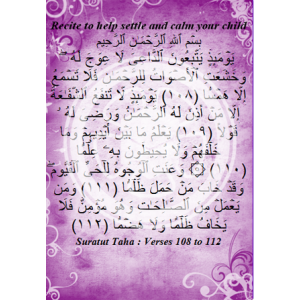 Recite to help settle and calm your child
بِسْمِ ٱللَّهِ ٱلرَّحْمَٰنِ ٱلرَّحِيمِ
يَوْمَئِذٍ يَتَّبِعُونَ ٱلدَّاعِىَ لَا عِوَجَ لَهُۥ ۖ
وَخَشَعَتِ ٱلْأَصْوَاتُ لِلرَّحْمَٰنِ فَلَا تَسْمَعُ
إِلَّا هَمْسًا (١٠٨) يَوْمَئِذٍ لَّا تَنفَعُ ٱلشَّفَٰعَةُ
إِلَّا مَنْ أَذِنَ لَهُ ٱلرَّحْمَٰنُ وَرَضِىَ لَهُۥ
قَوْلًا (١٠٩) يَعْلَمُ مَا بَيْنَ أَيْدِيهِمْ وَمَا
خَلْفَهُمْ وَلَا يُحِيطُونَ بِهِۦ عِلْمًا
(١١٠) ۞ وَعَنَتِ ٱلْوُجُوهُ لِلْحَىِّ ٱلْقَيُّومِ ۖ
وَقَدْ خَابَ مَنْ حَمَلَ ظُلْمًا (١١١) وَمَن
يَعْمَلْ مِنَ ٱلصَّٰلِحَٰتِ وَهُوَ مُؤْمِنٌ فَلَا
يَخَافُ ظُلْمًا وَلَا هَضْمًا (١١٢)
Suratut Taha : Verses 108 to 112